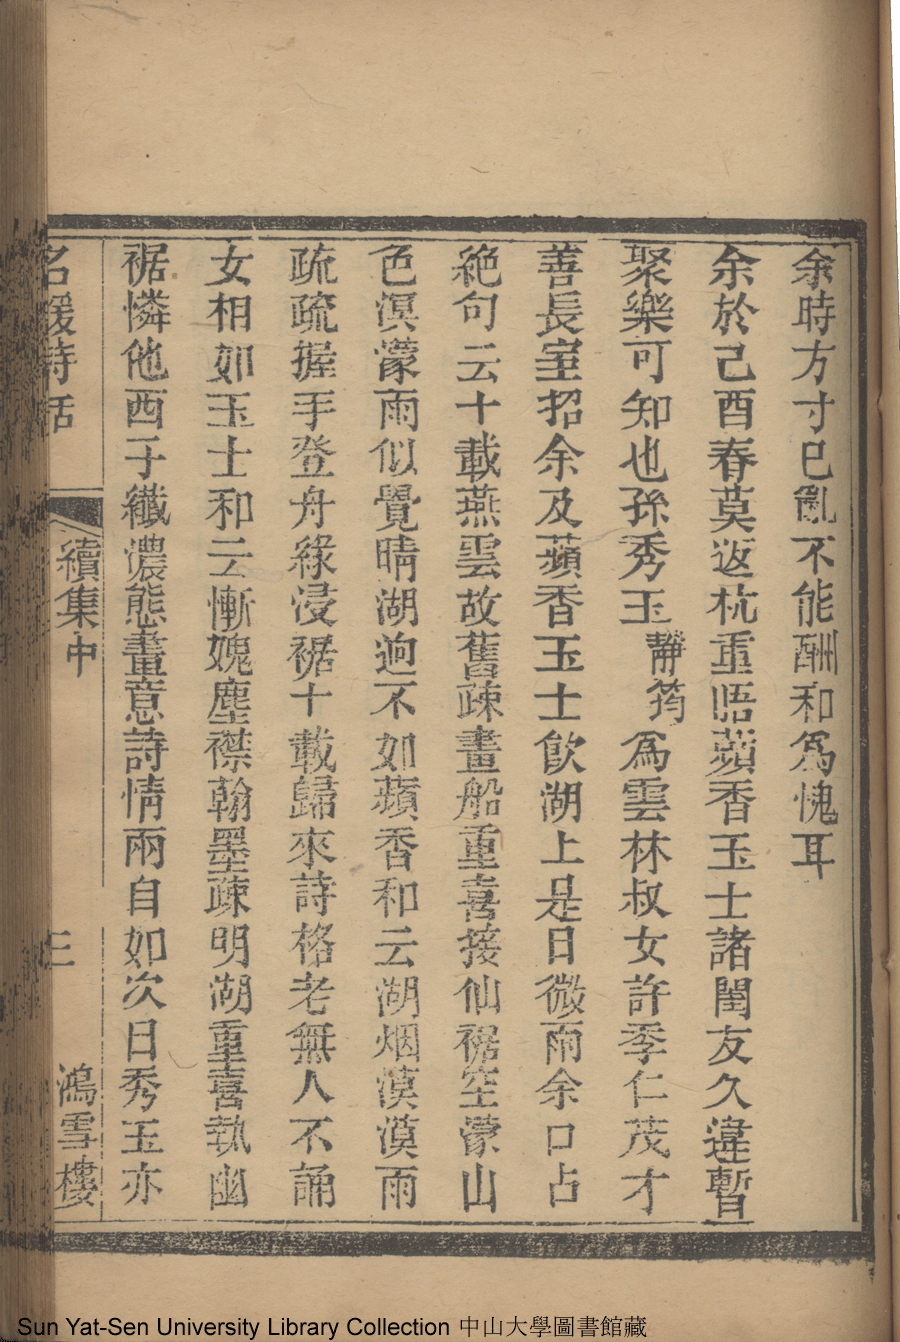 余時方寸已亂不能酬和爲愧耳
余於己酉春莫返杭重晤蘋香玉士諸閨友久違暫
聚樂可知也孫秀玉靜筠爲雲林叔女許季仁茂才
善長室招余及蘋香玉士飲湖上是日微雨余口占
絕句云十載燕雲故舊疎畫船重喜接仙裾空濛山
色溟濛雨似覺晴湖逈不如蘋香和云湖烟漠漠雨
疏疏握手登舟綠浸裾十載歸來詩格老無人不誦
女相如玉士和云慚媿塵襟翰墨疎明湖重喜執幽
裾憐他西子纖濃態畫意詩情兩自如次日秀玉亦
名媛詩話
續集中
三
鴻雪樓
Sun Yat-Sen University Library Collection 中山大學圖書館藏